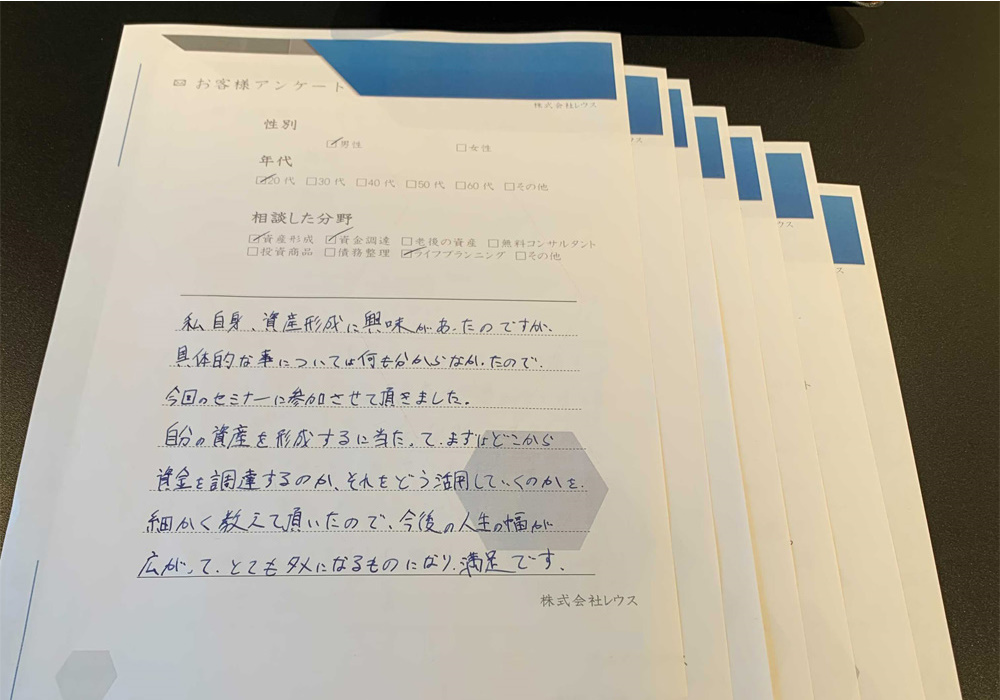 お客様アンケート
株式会社レウス
性別
☑男性 □女性
年代
☑20代 □30代 □40代 □50代 □60代 □その他
相談した分野
☑資産形成 ☑資金調達 □老後の資産 □無料コンサルタント
□投資商品 □債務整理 ☑ライフプランニング □その他
私自身、資産形成に興味があったのですが、
具体的な事については何も分からなかったので、
今回のセミナーに参加させて頂きました。
自分の資産を形成するに当たって、まずはどこから
資金を調達するのか、それをどう活用していくのかを、
細かく教えて頂いたので、今後の人生の幅が
広がって、とてもタメになるものになり、満足です。
株式会社レウス
ス
ス
ス